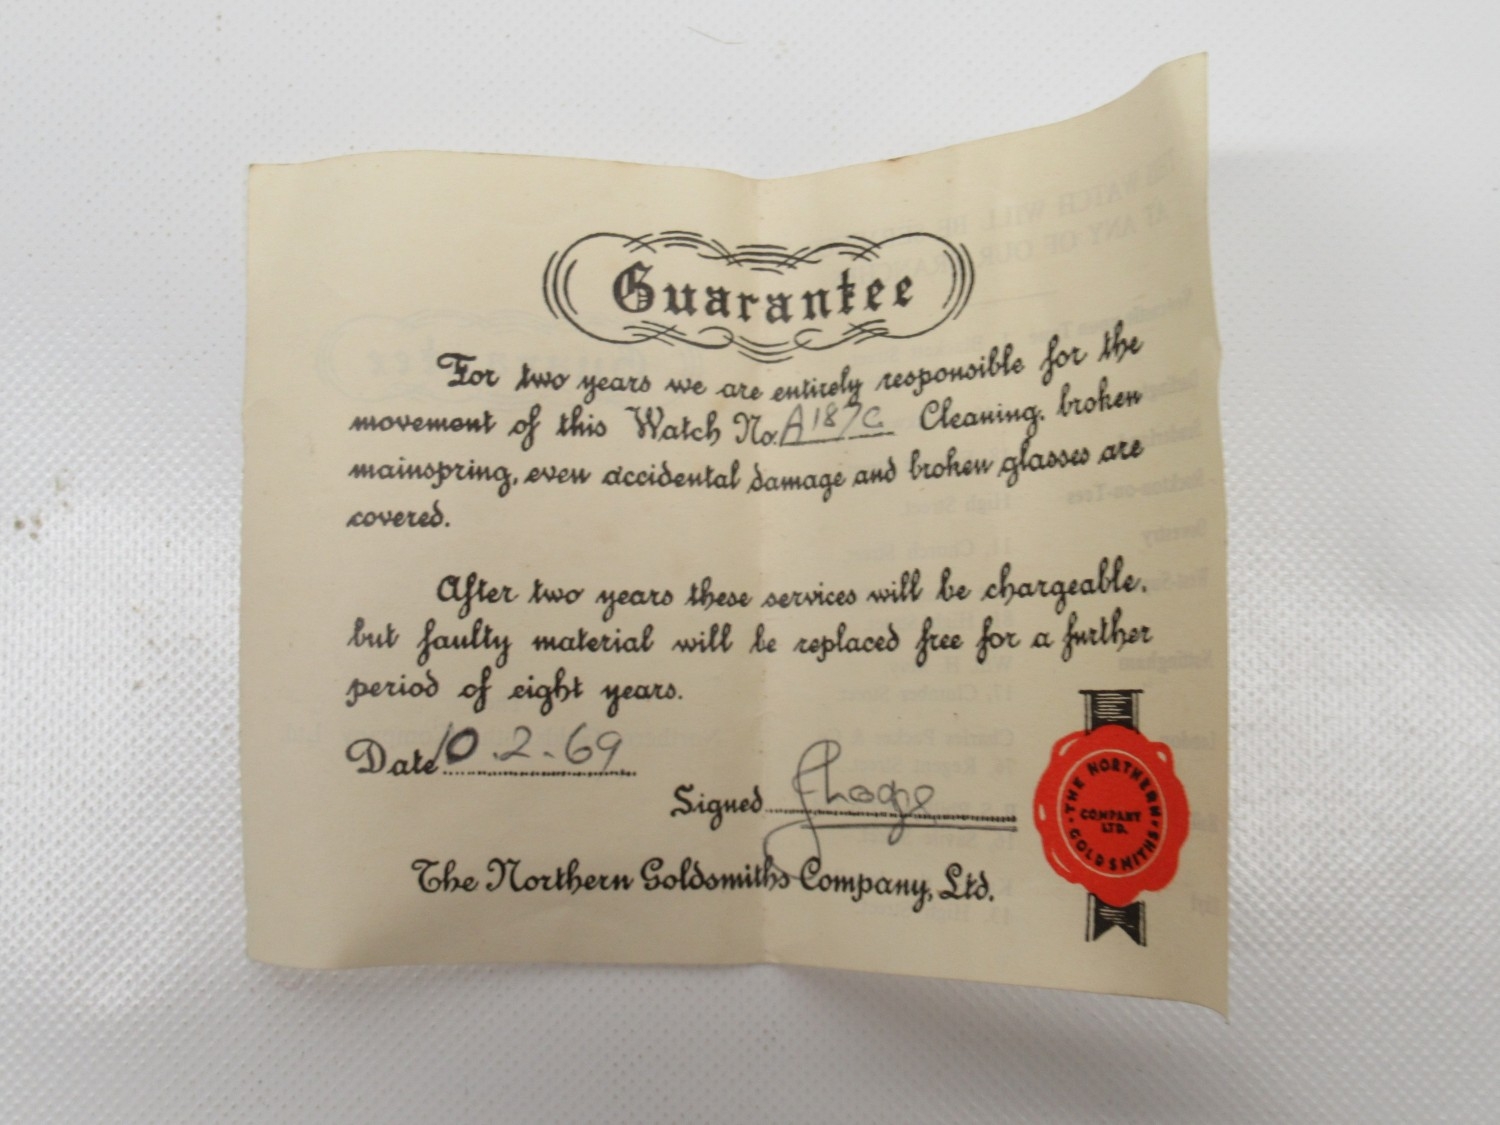 Guarantee
For two years we are entirely responsible for the
movement of this Watch No. A187C Cleaning, broken
mainspring, even accidental damage and broken glasses are
covered.
After two years these services will be chargeable,
but faulty material will be replaced free for a further
period of eight years.
Date 10.2.69
Signed
The Northern Goldsmiths Company, Ltd.
THE NORTHERN
COMPANY
LTD.
GOLDSMITHS